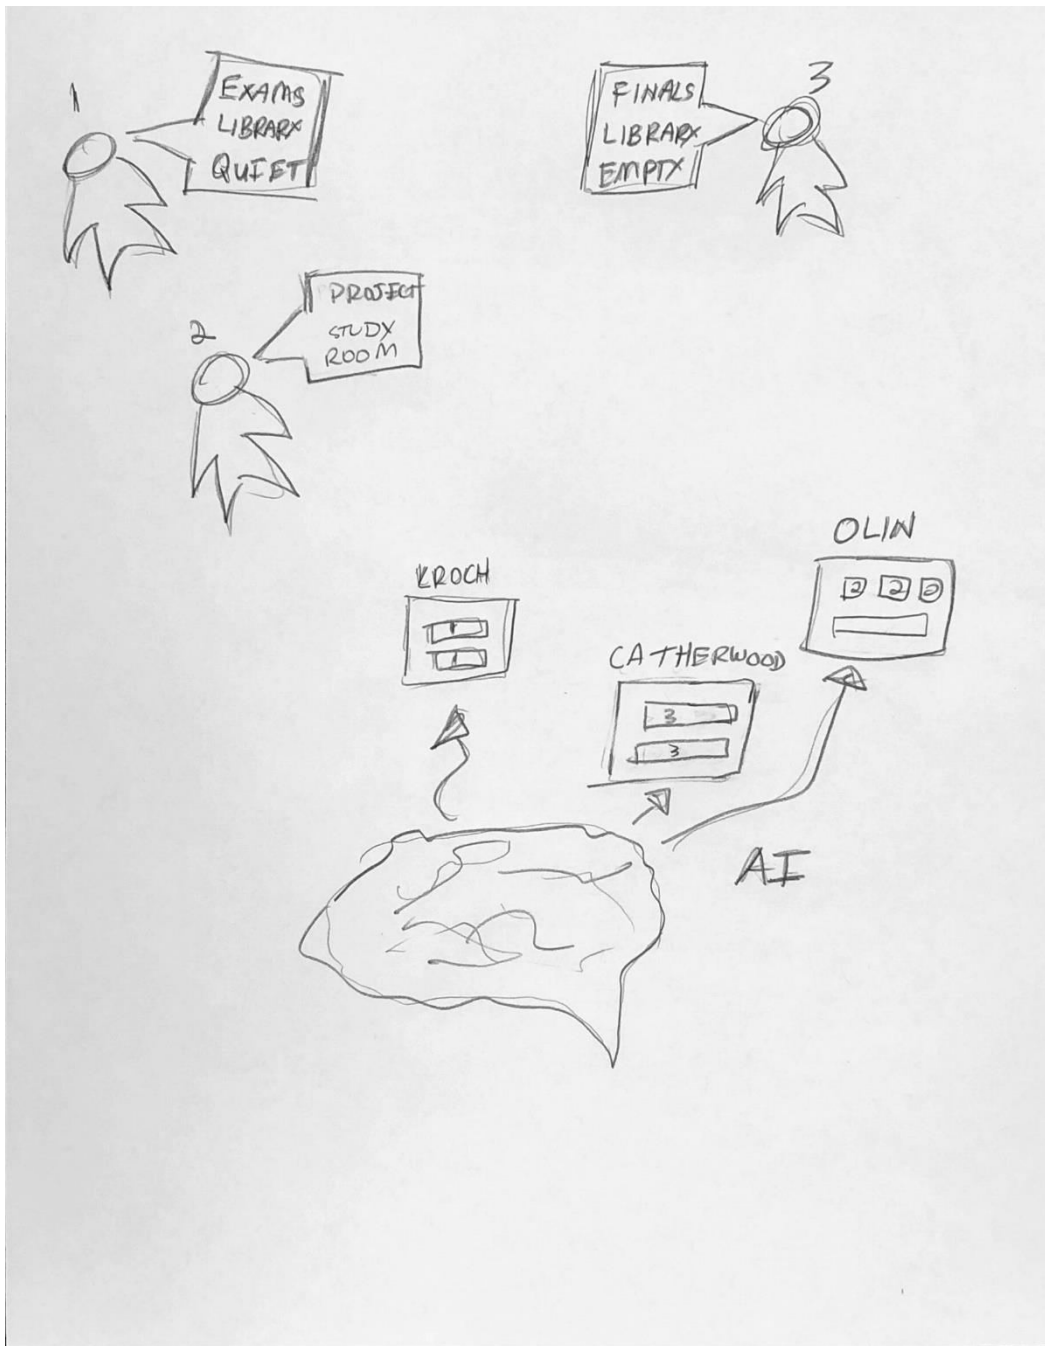 1
EXAMS
LIBRARY
QUIET
3
FINALS
LIBRARY
EMPTY
2
PROJECT
STUDY
ROOM
OLIN
2 2 2
KROCH
1
1
CATHERWOOD
3
3
AI